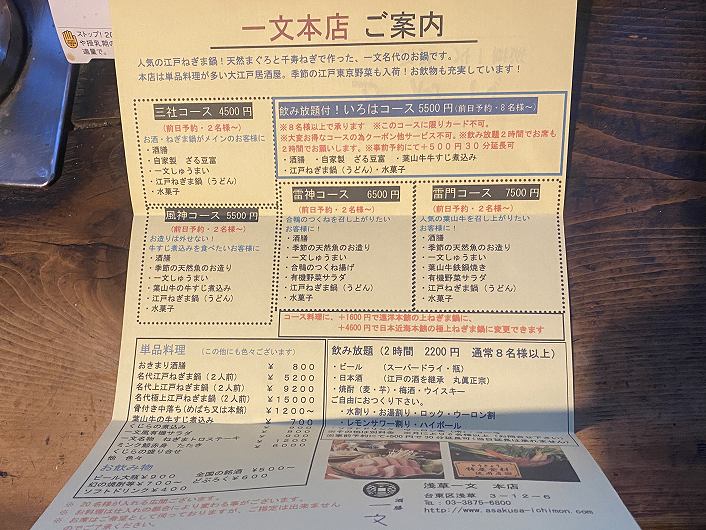 ストップ！20
や授乳期の
適量で。
一文本店 ご案内
人気の江戸ねぎま鍋！天然まぐろと千寿ねぎで作った、一文名代のお鍋です。
本店は単品料理が多い大江戸居酒屋。季節の江戸東京野菜も入荷！お飲物も充実しています！
三社コース 4500円
（前日予約・2名様～）
お酒・ねぎま鍋がメインのお客様に
・酒膳
・自家製 ざる豆富
・一文しゅうまい
・江戸ねぎま鍋（うどん）
・水菓子
飲み放題付！いろはコース 5500円（前日予約・8名様～）
※8名様以上で承ります ※このコースに限りカード不可。
※大変お得なコースの為クーポン他サービス不可。※飲み放題2時間でお席も
2時間でお願いします。※事前予約にて+500円30分延長可
・酒膳 ・自家製 ざる豆富 ・一文しゅうまい ・葉山牛牛すじ煮込み
・江戸ねぎま鍋（うどん）・水菓子
風神コース 5500円
（前日予約・2名様～）
お造りは外せない！
牛すじ煮込みを食べたいお客様に
・酒膳
・季節の天然魚のお造り
・一文しゅうまい
・葉山牛の牛すじ煮込み
・江戸ねぎま鍋（うどん）
・水菓子
雷神コース 6500円
（前日予約・2名様～）
合鴨のつくねを召し上がりたい
お客様に！
・酒膳
・季節の天然魚のお造り
・一文しゅうまい
・合鴨のつくね揚げ
・有機野菜サラダ
・江戸ねぎま鍋（うどん）
・水菓子
雷門コース 7500円
（前日予約・2名様～）
人気の葉山牛を召し上がりたい
お客様に！
・酒膳
・季節の天然魚のお造り
・一文しゅうまい
・葉山牛鉄鍋焼き
・有機野菜サラダ
・江戸ねぎま鍋（うどん）
・水菓子
コース料理に、+1600円で遠洋本鮪の上ねぎま鍋に、
+4600円で日本近海本鮪の極上ねぎま鍋に変更できます
単品料理 （この他にも色々ございます）
おきまり酒膳 ¥ 800
名代江戸ねぎま鍋（2人前） ¥ 5200
名代上江戸ねぎま鍋（2人前） ¥ 9200
名代極上江戸ねぎま鍋（2人前） ¥15000
骨付き中落ち（めばち又は本鮪） ¥1200～
葉山牛の牛すじ煮込み ¥ 700
くじらの煮込み
一文風有機サラダ
一文名物 ねぎまトロステーキ
ミンク鯨赤身 たたき ¥1200
くじらの盛り合せ
他 色々
お飲み物
ビール大瓶¥900 全国の銘酒 ¥500～
幻の焼酎等¥700～ どぶろく ¥600
ソフトドリンク¥400
飲み放題（2時間 2200円 通常8名様以上）
・ビール （スーパードライ・瓶）
・日本酒 （江戸の酒を継承 丸眞正宗）
・焼酎（麦・芋）・梅酒・ウイスキー
ご自由におつくり下さい。
・水割り・お湯割り・ロック・ウーロン割
・レモンサワー割り・ハイボール
※事前予約にて+500円で30分延長可
※お料理は仕入れの都合により変わる事がございます。
酒膳 一文
浅草一文 本店
台東区浅草 3－12－6
Tel：03-3875-6800
http://www.asakusa-ichimon.com